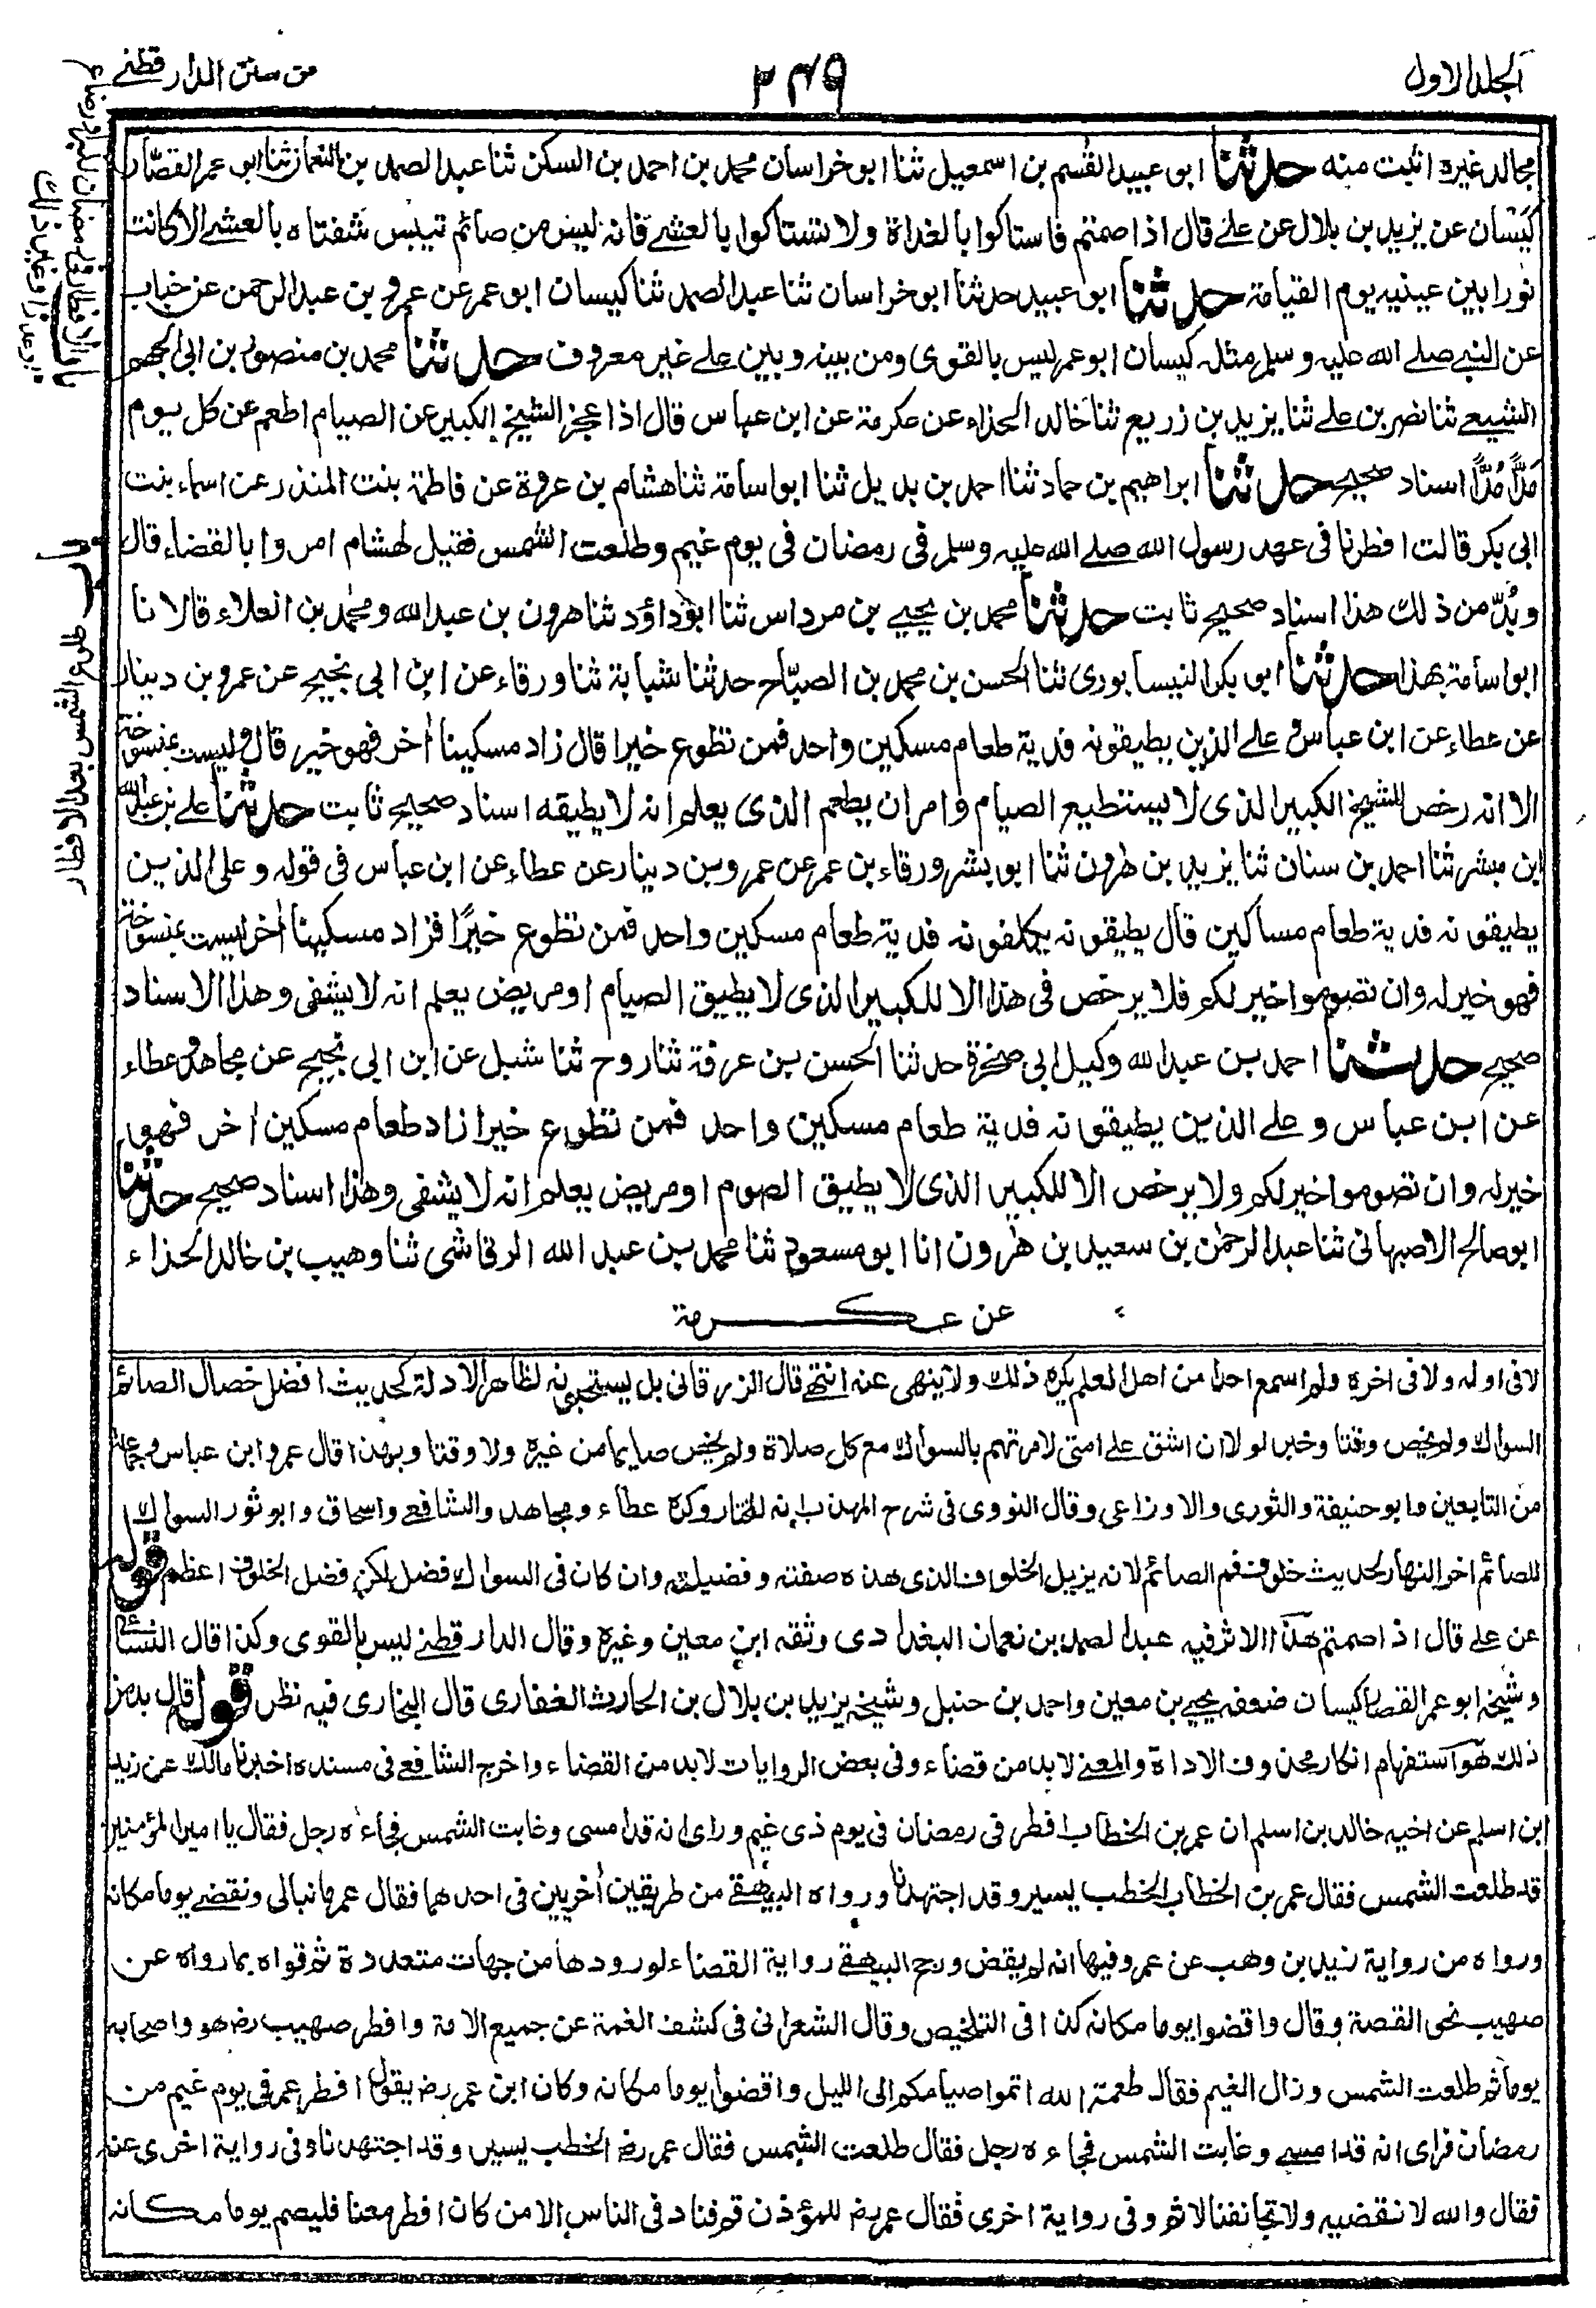 الجلد الاول
٢٤٩
من سنن الدار قطنے
مجالد غيره اثبت منه حدثنا ابو عبيد القسم بن اسمعيل ثنا ابو خراسان محمد بن احمد بن السكن ثنا عبد الصمد بن النعمان ثنا ابو عمر القصّار
كَيْسَان عن يزيد بن بلال عن علے قال اذا صمتم فاستاكوا بالغداة ولا تستاكوا بالعشے فانه ليس من صائم تيبس شفتاه بالعشے الا كانت
نورا بين عينيه يوم القيامة حدثنا ابو عبيد حدثنا ابو خراسان ثنا عبد الصمد ثنا كيسان ابو عمر عن عمرو بن عبد الرحمن عن خباب
عن النبے صلے الله عليه وسلم مثله كيسان ابو عمر ليس بالقوى ومن بينه وبين علے غير معروف حدثنا محمد بن منصور بن ابى الجهم
الشيعے ثنا نصر بن علے ثنا يزيد بن زريع ثنا خالد الحذاء عن عكرمة عن ابن عباس قال اذا عجز الشيخ الكبير عن الصيام اطعم عن كل يوم
مُدًّا مُدًّا اسناد صحيح حدثنا ابراهيم بن حماد ثنا احمد بن بديل ثنا ابو اسامة ثنا هشام بن عروة عن فاطمة بنت المنذر عن اسماء بنت
ابى بكر قالت افطرنا فى عهد رسول الله صلے الله عليه وسلم فى رمضان فى يوم غيم وطلعت الشمس فقيل لهشام امروا بالقضاء قال
وبُدّ من ذلك هذا اسناد صحيح ثابت حدثنا محمد بن يحيے بن مرداس ثنا ابو داؤد ثنا هرون بن عبد الله ومحمد بن العلاء قالا نا
ابو اسامة بهذا حدثنا ابو بكر النيسابورى ثنا الحسن بن محمد بن الصبّاح حدثنا شبابة ثنا ورقاء عن ابن ابى نجيح عن عمرو بن دينار
عن عطاء عن ابن عباس وعلے الذين يطيقونه فدية طعام مسكين واحد فمن تطوع خيرا قال زاد مسكينا اٰخر فهو خير قال وليست بمنسوخة
الا انه رخص للشيخ الكبير الذى لا يستطيع الصيام وامر ان يطعم الذى يعلم انه لا يطيقه اسناد صحيح ثابت حدثنا علے بن عبد الله
ابن مبشر ثنا احمد بن سنان ثنا يزيد بن هٰرون ثنا ابو بشر ورقاء بن عمر عن عمرو بن دينار عن عطاء عن ابن عباس فى قوله وعلى الذين
يطيقونه فدية طعام مساكين قال يطيقونه يكلفونه فدية طعام مسكين واحد فمن تطوع خيرًا فزاد مسكينا اٰخر ليست بمنسوخة
فهو خير له وان تصوموا خير لكم فلا يرخص فى هذا الا للكبير الذى لا يطيق الصيام او مريض يعلم انه لا يشفى وهذا الاسناد
صحيح حدثنا احمد بن عبد الله وكيل ابى صخرة حدثنا الحسن بن عرفة ثنا روح ثنا شبل عن ابن ابى نجيح عن مجاهد وعطاء
عن ابن عباس وعلے الذين يطيقونه فدية طعام مسكين واحد فمن تطوع خيرا زاد طعام مسكين اٰخر فهو
خير له وان تصوموا خير لكم ولا يرخص الا للكبير الذى لا يطيق الصوم او مريض يعلم انه لا يشفى وهذا اسناد صحيح حدثنا
ابو صالح الاصبهانى ثنا عبد الرحمٰن بن سعيد بن هٰرون انا ابو مسعود ثنا محمد بن عبد الله الرقاشى ثنا وهيب بن خالد الحذاء
عن عكرمة
لا فى اوله ولا فى اخره ولم اسمع احدا من اهل العلم يكره ذلك ولا ينهى عنه انتهے قال الزرقانى بل يستحبونه لظاهر الادلة كحديث افضل خصال الصائم
السواك ولم يخص وقتا وخبر لولا ان اشق على امتى لامرتهم بالسواك مع كل صلاة ولم يخص صايما من غيره ولا وقتا وبهذا قال عمر وابن عباس وجماعة
من التابعين وابو حنيفة والثورى والاوزاعى وقال النووى فى شرح المهذب انه المختار وكره عطاء ومجاهد والشافعے واسحاق وابو ثور السواك
للصائم اٰخر النهار لحديث خلوف فم الصائم لانه يزيل الخلوف الذى هذه صفته وفضيلته وان كان فى السواك فضل لكن فضل الخلوف اعظم قوله
عن علے قال اذا صمتم هذا الاثر فيه عبد الصمد بن نعمان البغدادى وثقه ابن معين وغيره وقال الدار قطنے ليس بالقوى وكذا قال النسائے
وشيخه ابو عمر القصار كيسان ضعفه يحيے بن معين واحمد بن حنبل وشيخه يزيد بن بلال بن الحارث الغفارى قال البخارى فيه نظر قوله قال بد من
ذلك هو استفهام انكار محذوف الاداة والمعنے لا بد من قضاء وفى بعض الروايات لا بد من القضاء واخرج الشافعے فى مسنده اخبرنا مالك عن زيد
ابن اسلم عن اخيه خالد بن اسلم ان عمر بن الخطاب افطر فى رمضان فى يوم ذى غيم وراى انه قد امسى وغابت الشمس فجاءه رجل فقال يا امير المؤمنين
قد طلعت الشمس فقال عمر بن الخطاب الخطب يسير وقد اجتهدنا ورواه البيهقے من طريقين اُخريين فى احدهما فقال عمر ما نبالى ونقضے يوما مكانه
ورواه من رواية زيد بن وهب عن عمر وفيها انه لم يقض ورجح البيهقے رواية القضاء لورودها من جهات متعددة ثم قواه بما رواه عن
صهيب نحو القصة وقال واقضوا يوما مكانه كذا فى التلخيص وقال الشعرانى فى كشف الغمة عن جميع الامة وافطر صهيب رض هو واصحابه
يوما ثم طلعت الشمس وزال الغيم فقال طعمة الله اتموا صيامكم الى الليل واقضوا يوما مكانه وكان ابن عمر رض يقول افطر عمر فى يوم غيم من
رمضان فراى انه قد امسے وغابت الشمس فجاءه رجل فقال طلعت الشمس فقال عمر رض الخطب يسير وقد اجتهدنا وفى رواية اخرى عنه
فقال والله لا نقضيه ولا تجانفنا لاثم وفى رواية اخرى فقال عمر رض للمؤذن قم فناد فى الناس الا من كان افطر معنا فليصم يوما مكانه
طلوع الشمس بعد الافطار